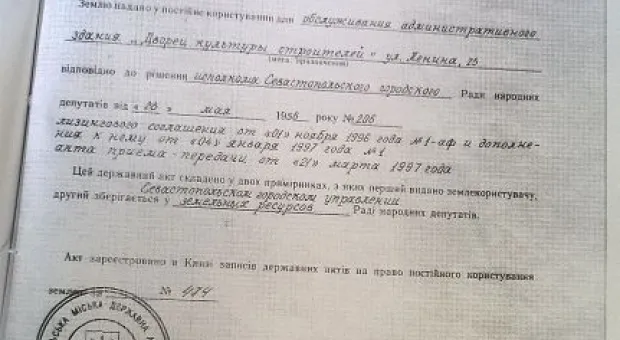 Землю надано у постійне користування для обслуживания административного
здания „Дворец культуры строителей" ул. Ленина, 25
(мета призначення)
відповідно до рішення исполкома Севастопольского городского Ради народних
депутатів від « 28 » мая 1956 року № 286
лизингового соглашения от «01» ноября 1996 года №1-аф и дополне-
ния к нему от «04» января 1997 года №1
акта приема-передачи от «21» марта 1997 года
Цей державний акт складено у двох примірниках, з яких перший видано землекористувачу,
Севастопольском городском управлении
другий зберігається у земельных ресурсов Раді народних депутатів.
Акт зареєстровано в Книзі записів державних актів на право постійного користування
землею № 474
МІСЬКА ДЕРЖАВНА